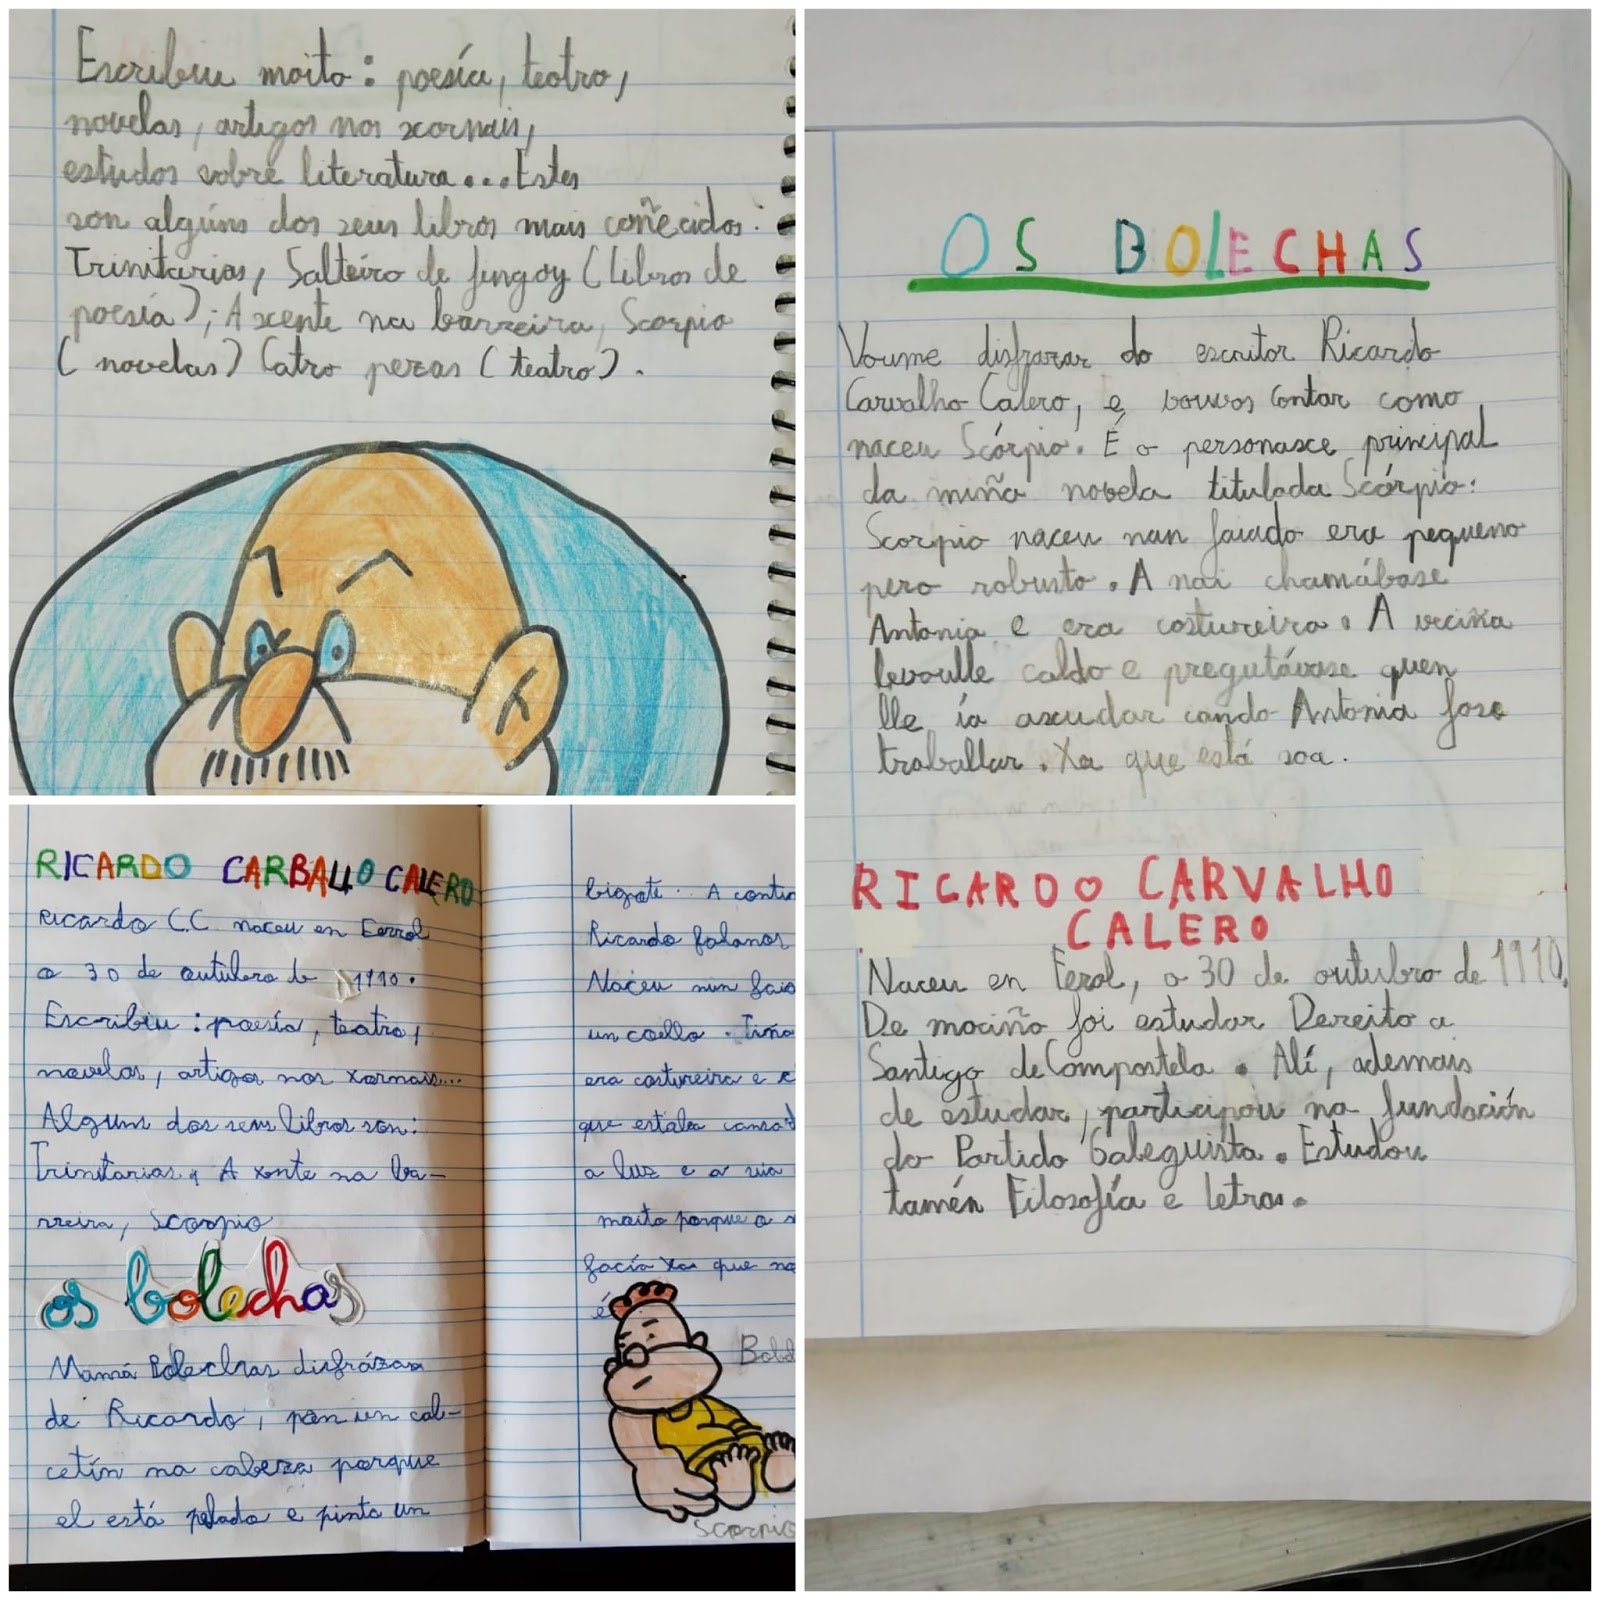 Escribiu moito: poesía, teatro,
novelas, artigos nos xornais,
estudos sobre literatura...Estes
son algúns dos seus libros mais coñecidos:
Trinitarias, Salteiro de fingoy (libros de
poesía); A xente na barreira, Scorpio
(novelas) Catro pezas (teatro).
RICARDO CARBALLO CALERO
Ricardo C.C. naceu en Ferrol
o 30 de outubro de 1910.
Escribiu: poesía, teatro,
novelas, artigos nos xornais...
Algúns dos seus libros son:
Trinitarias, A xente na ba-
rreira, Scorpio
os bolechas
Mamá Bolechas disfrázase
de Ricardo, pon un cal-
cetín na cabeza porque
el está pelado e pinta un
bigote. A contin
Ricardo falanos
Naceu nun faia
un coello. Tiña
era costureira e
que estaba cansa
a luz e a súa
moito porque o
facía xa que na
é
Bold
Scorpio
OS BOLECHAS
Voume disfrazar do escritor Ricardo
Carvalho Calero, e vouvos contar como
naceu Scórpio. É o personaxe principal
da miña novela titulada Scórpio:
Scorpio naceu nun faiado era pequeno
pero robusto. A nai chamábase
Antonia e era costureira. A veciña
levoulle caldo e pregutávase quen
lle ía axudar cando Antonia fose
traballar. Xa que está soa.
RICARDO CARVALHO
CALERO
Naceu en Ferol, o 30 de outubro de 1910.
De mociño foi estudar Dereito a
Santigo de Compostela. Alí, ademais
de estudar, participou na fundación
do Partido Galeguista. Estudou
tamén Filosofía e letras.